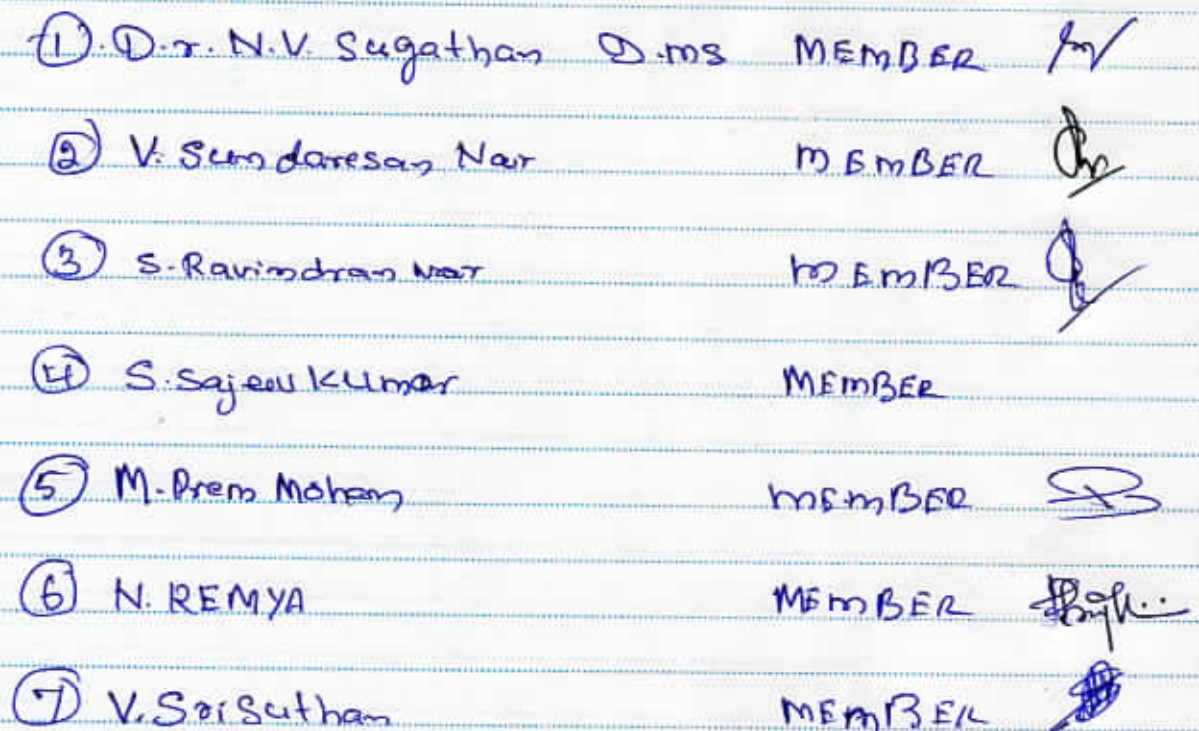 ① D.r. N.V. Sugathan D.ms MEMBER
② V. Sundaresan Nair MEMBER
③ S. Ravindran Nair MEMBER
④ S. Sajeev Kumar MEMBER
⑤ M. Prem Mohan MEMBER
⑥ N. REMYA MEMBER
⑦ V. Sri Suthan MEMBER